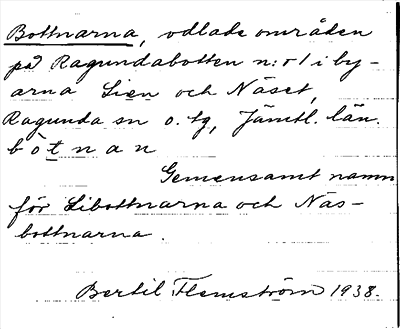 Bottnarna, odlade områden
på Ragundabotten n:r 1 i by-
arna Lien och Näset,
Ragunda sn o. tg, Jämtl. län.
bòtnan
Gemensamt namn
för Libottnarna och Näs-
bottnarna.
Bertil Flemström 1938.